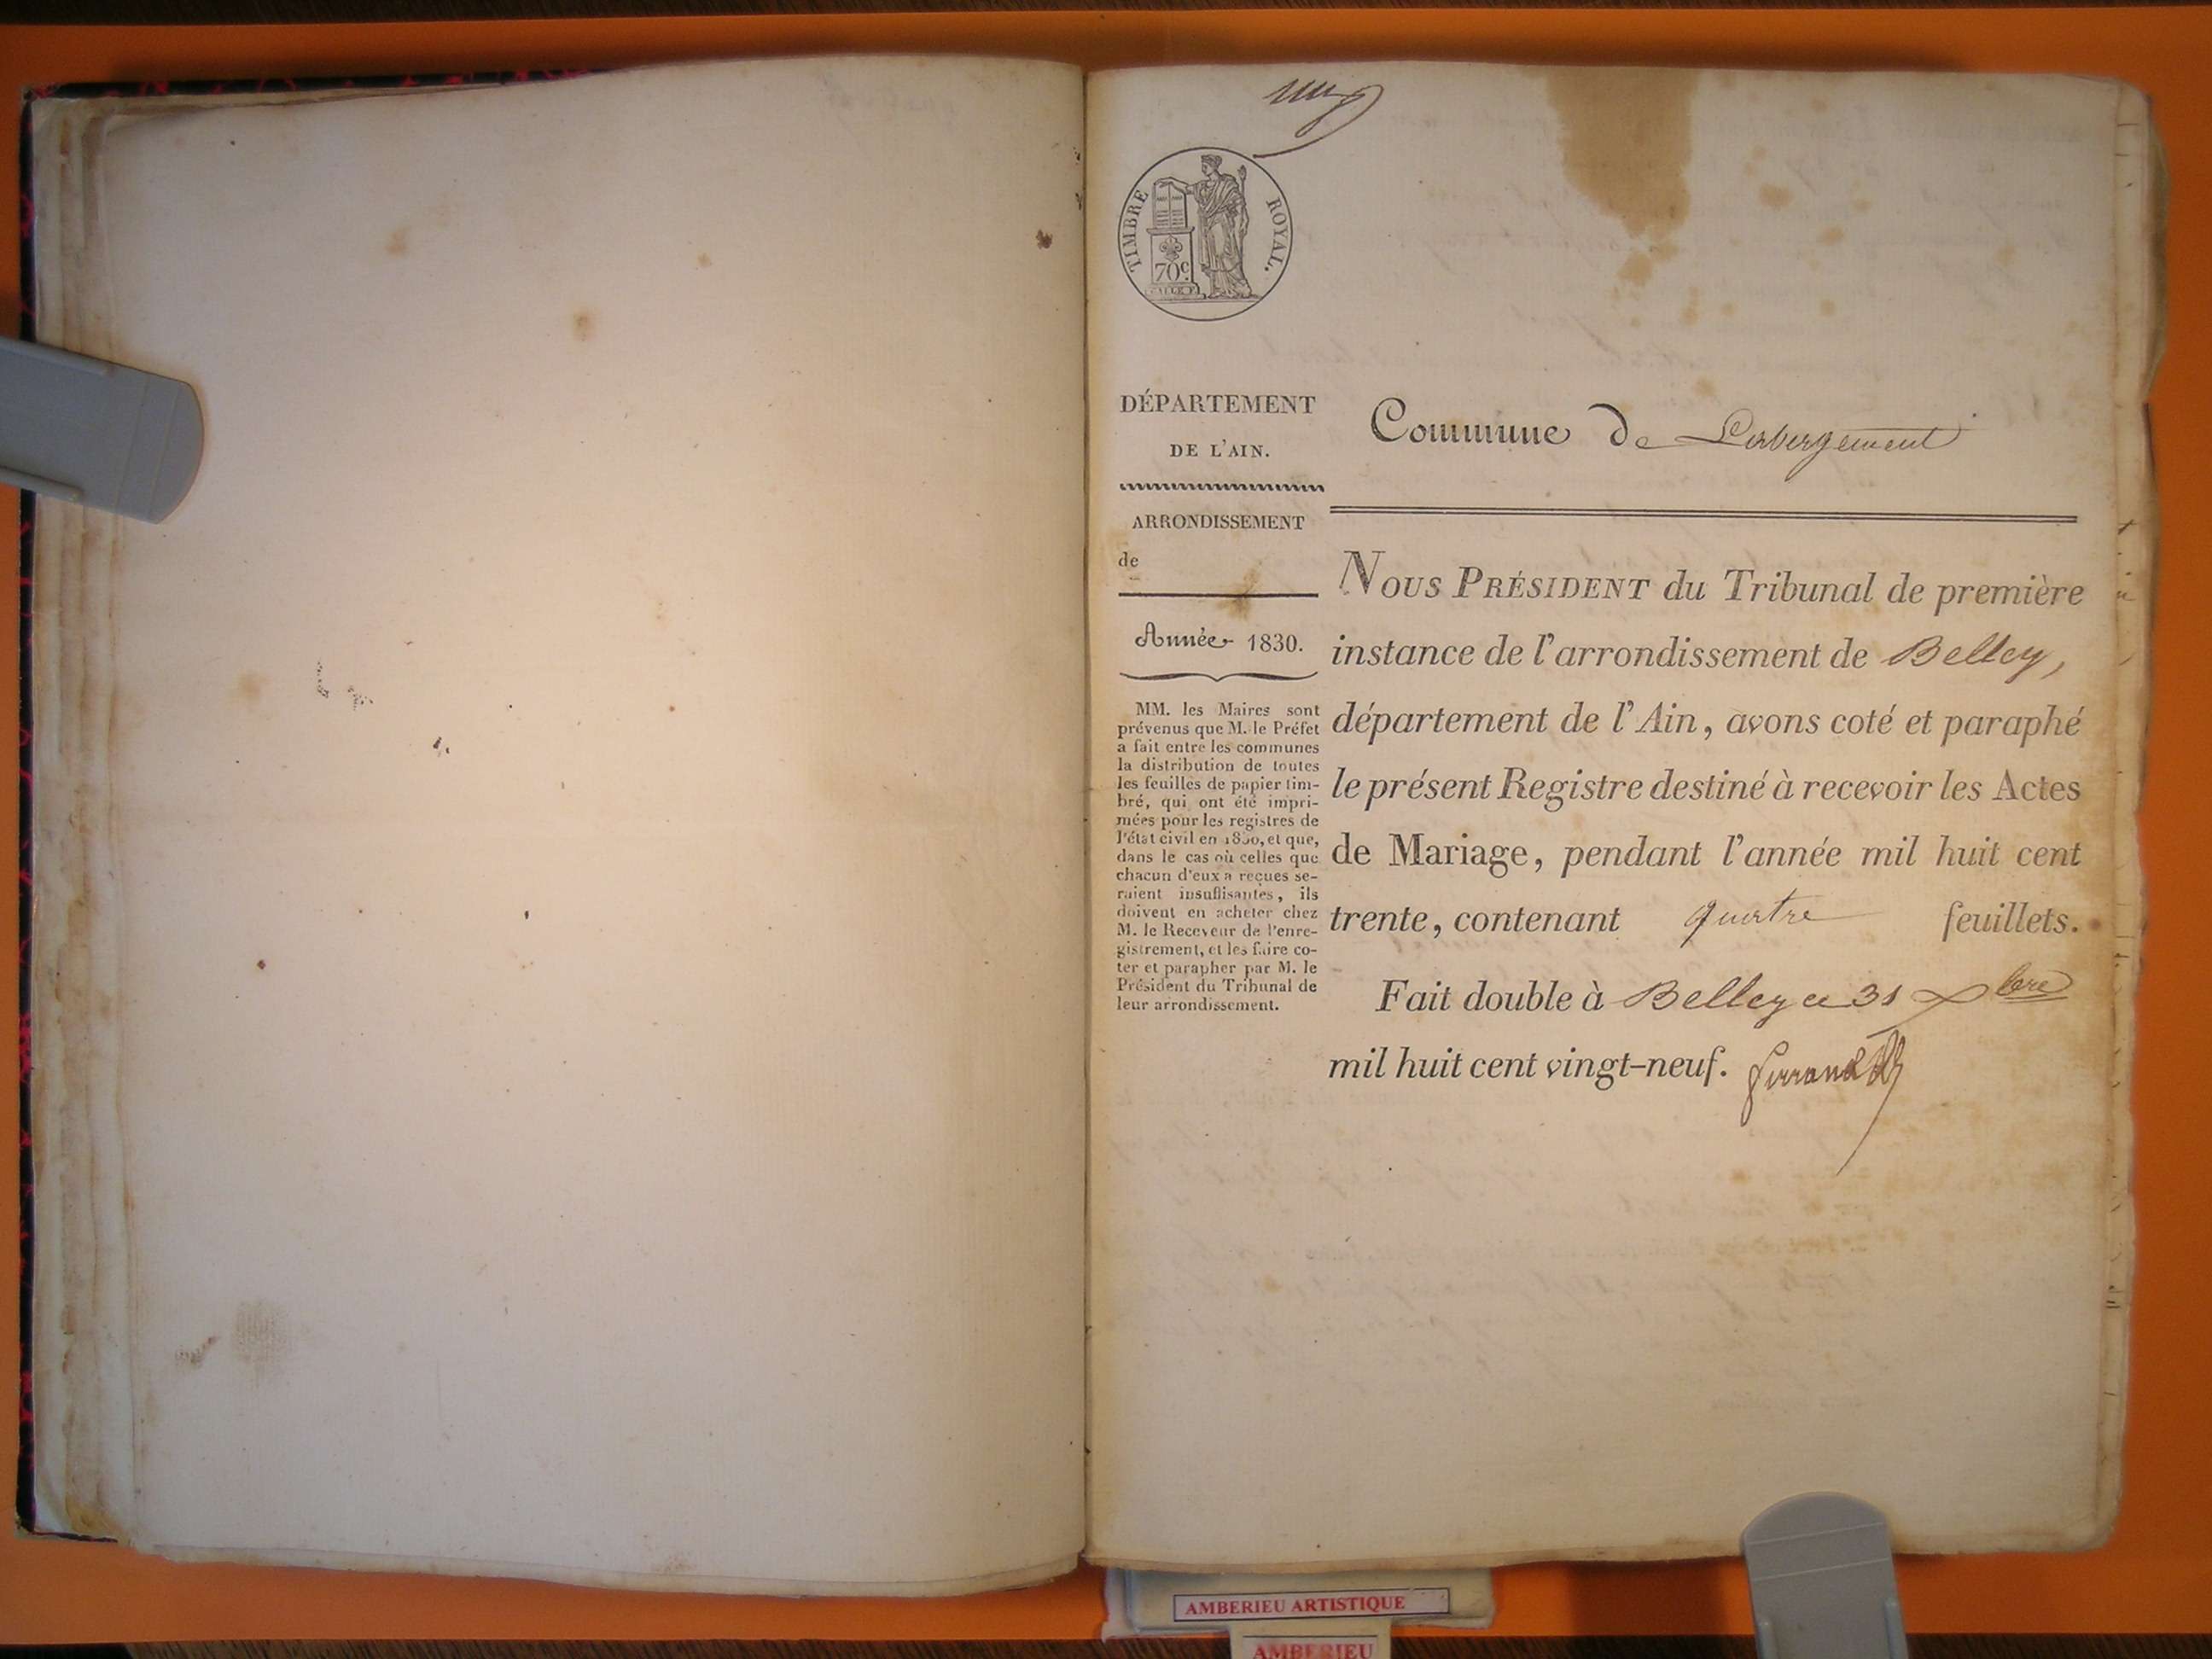 TIMBRE ROYAL.
70c.
DÉPARTEMENT
DE L'AIN.
ARRONDISSEMENT
de
Année 1830.
MM. les Maires sont
prévenus que M. le Préfet
a fait entre les communes
la distribution de toutes
les feuilles de papier tim-
bré, qui ont été impri-
mées pour les registres de
l'état civil en 1830, et que,
dans le cas où celles que
chacun d'eux a reçues se-
raient insuffisantes, ils
doivent en acheter chez
M. le Receveur de l'enre-
gistrement, et les faire co-
ter et parapher par M. le
Président du Tribunal de
leur arrondissement.
Commune de L'arbergement
NOUS PRÉSIDENT du Tribunal de première
instance de l'arrondissement de Belley,
département de l'Ain, avons coté et paraphé
le présent Registre destiné à recevoir les Actes
de Mariage, pendant l'année mil huit cent
trente, contenant quatre feuillets.
Fait double à Belley ce 31 Xbre
mil huit cent vingt-neuf.
AMBERIEU ARTISTIQUE
AMBERIEU